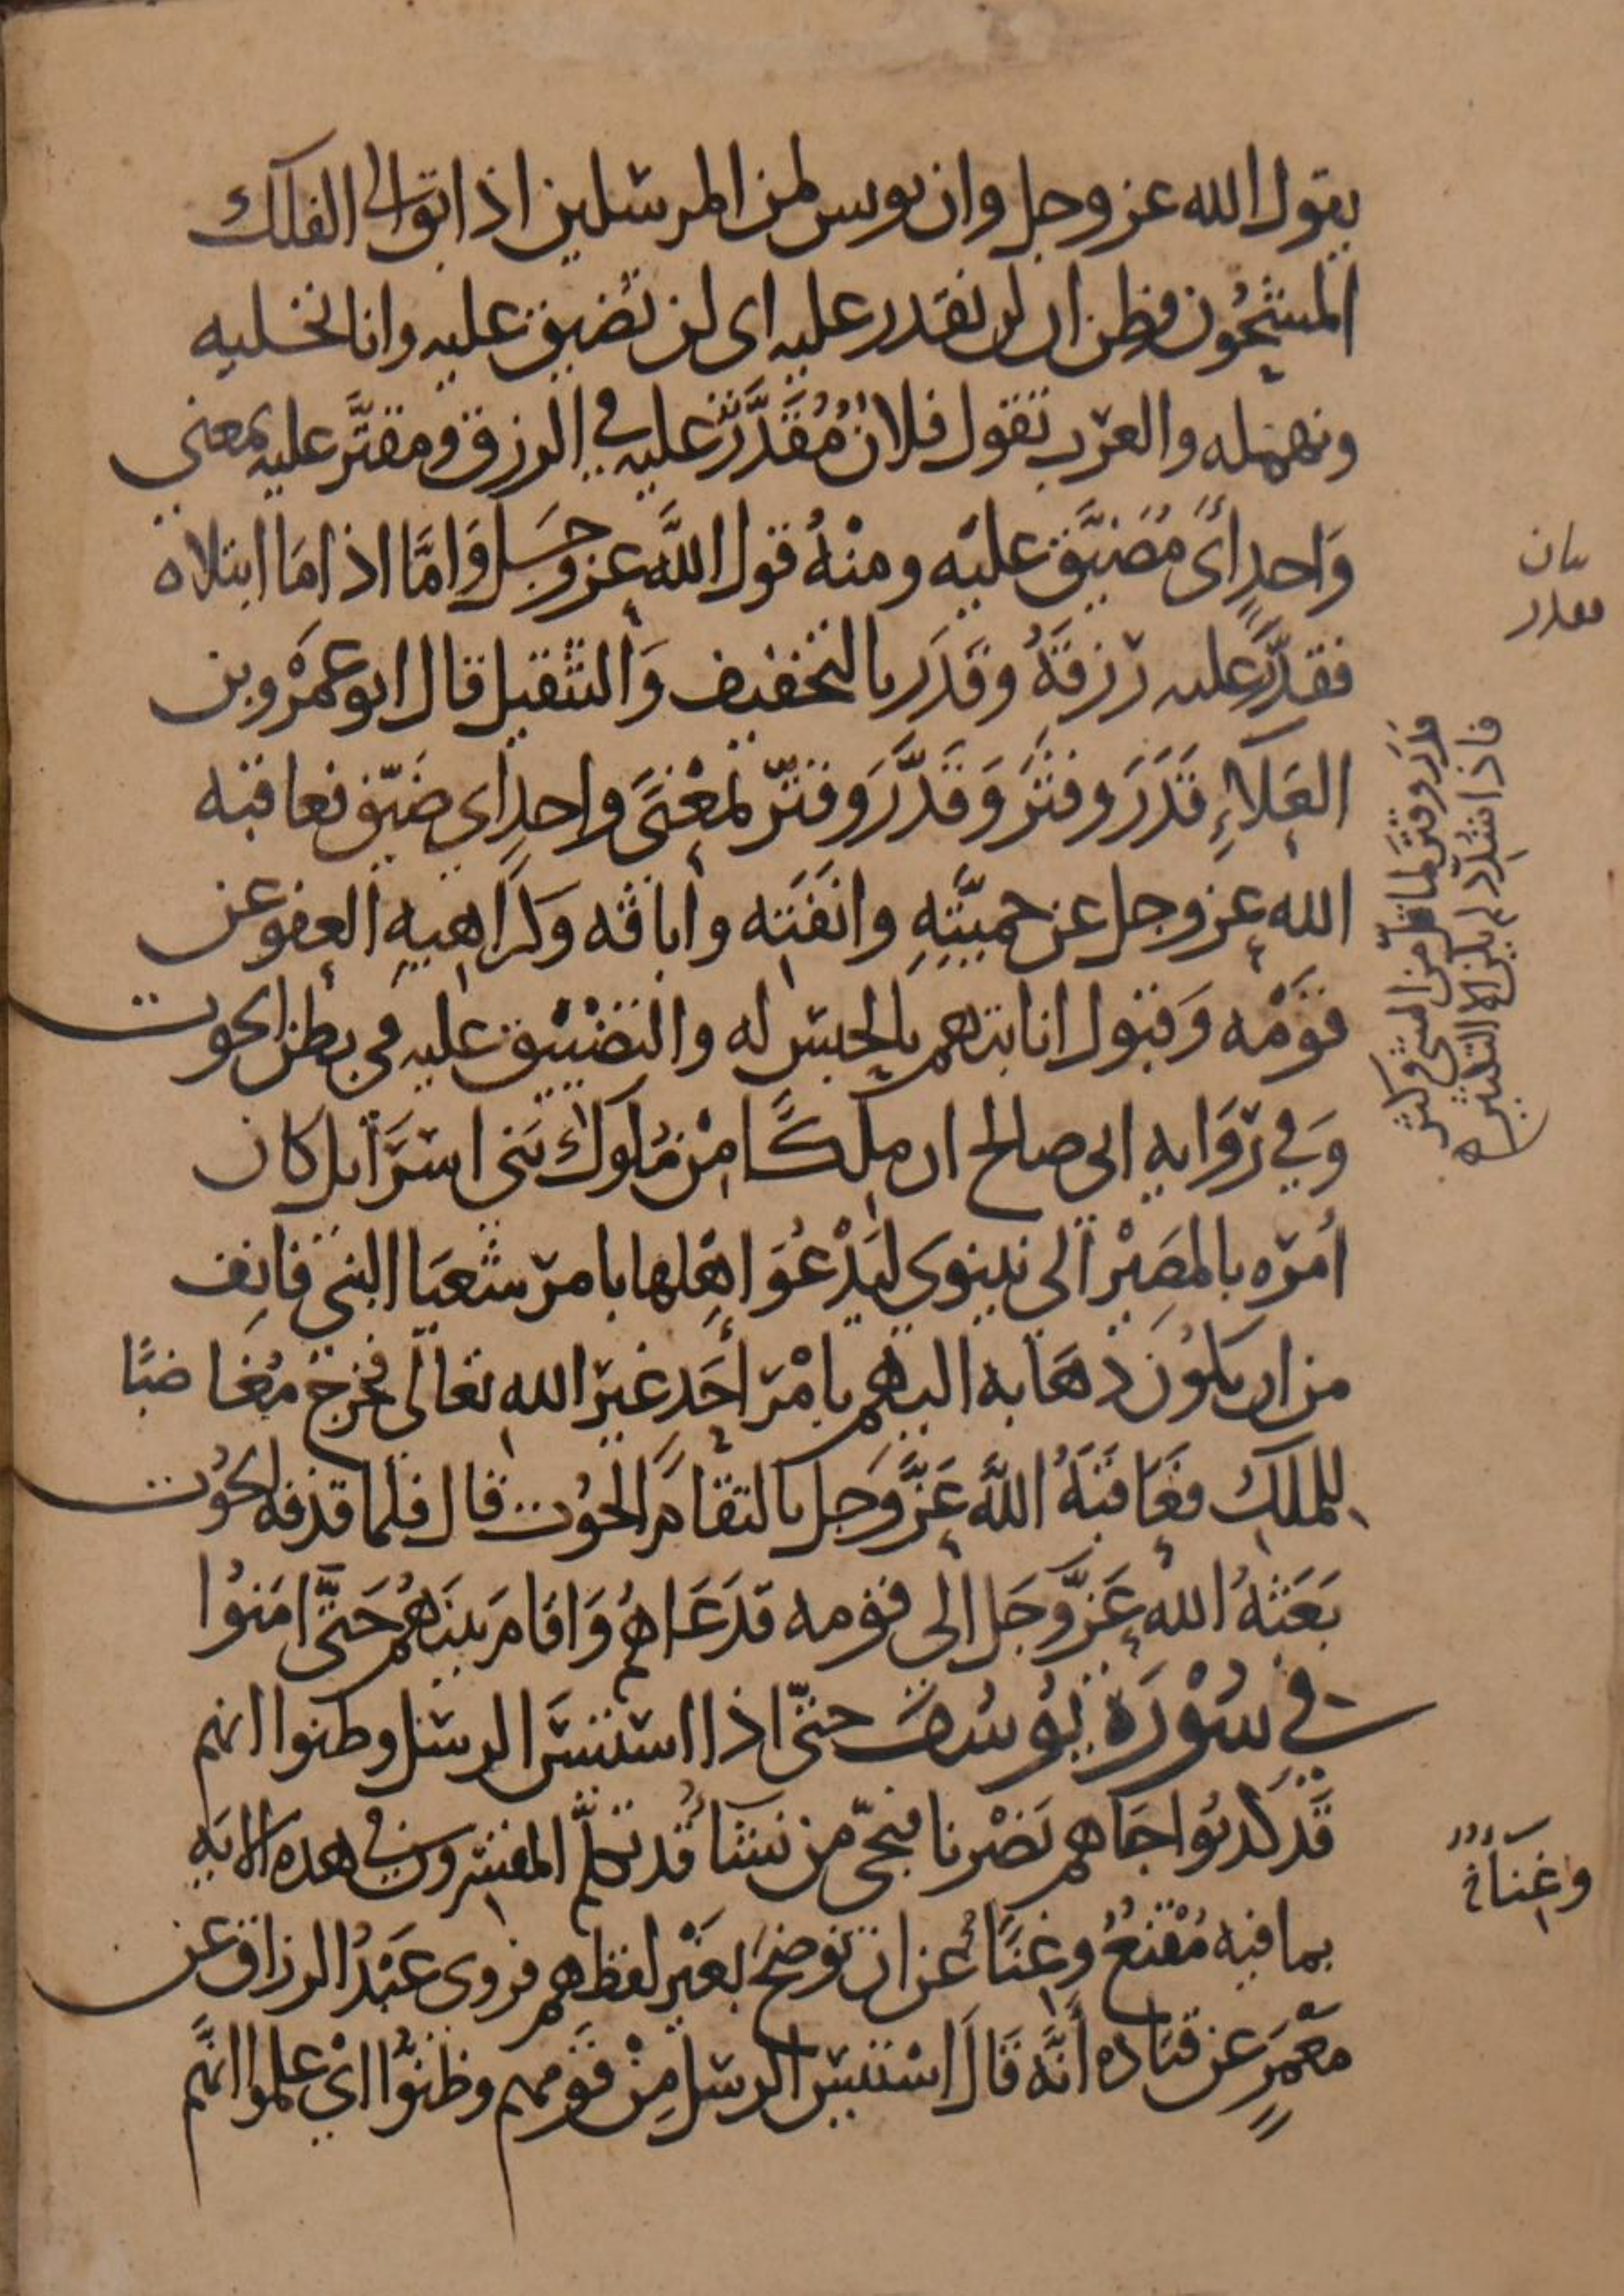 يقول الله عز وجل وان يونس لمن المرسلين اذ ابق الى الفلك
المشحون فظن ان لن نقدر عليه اى لن نضيق عليه وانا نخليه
ونهمله والعرب تقول فلانٌ مُقَدَّرٌ عليه في الرزق ومقتَّر عليه بمعنى
وَاحدٍ اىْ مُضَيَّق عليْه ومنْهُ قول اللَّه عز وجَل وَامَّا اذا مَا ابتلاه
فقدَّرَ عليه رزقَهُ وقَدَر بالتخفيف وَالتثقيل قال ابو عَمْرو بن
العَلاءِ قَدَرَ وقتَرَ وَقَدَّرَ وقتَّر بمعْنًى واحدٍ اى ضيّق فعاقبه
الله عز وجل عن حميَّتِهِ وانَفَته واباقه وكَرَاهيهِ العفو عن
قوْمه وَقبول انابتهم بالحبْس له والتضْييق عليه في بطن الحوت
وَفي رِوَايه ابى صالح ان ملِكًا مِنْ مُلوك بَنى اسرَايل كان
أمَره بالمصِيْر الى نينوى ليَدْعُوَ اهْلها بامر شعيَا النبى فانِف
من ان يكُون ذهَابه اليهم بامْر أحَد غير الله تعالى فخرج مُغاضبًا
للملك فعَاقبَهُ اللَّه عَزَّ وَجَل بالتقام الحُوْت قال فلما قذفه الحُوْت
بَعَثهُ الله عَزَّ وَجَل الى قوْمه فدَعَاهُم وَاقامَ بينَهُم حَتَّى امَنُوا
في سُوْرَة يُوْسُف حتّى اذا استيئس الرسل وظنوا انهم
قَد كُذبُوا جَاهم نَصْرنا فنجّى من نشَا قد تكلَّم المفسّرون في هذه الايَهِ
بما فيه مُقْنعٌ وغنَاءٌ عن ان توضحَ بغَيْر لفظهم فروى عَبْدُ الرزاق عن
مَعْمَرٍ عن قتاده أنَّه قَالَ اسْتيئس الرسل مِنْ قوْمهم وظنوُّا اىْ علموا انَّهم
بيان
مقدر
قدَر وقتَر لما قلّ من الشى وكثر
فاذا شُدِّد لم يكن الا للتكثير
وغِنَاءٌ